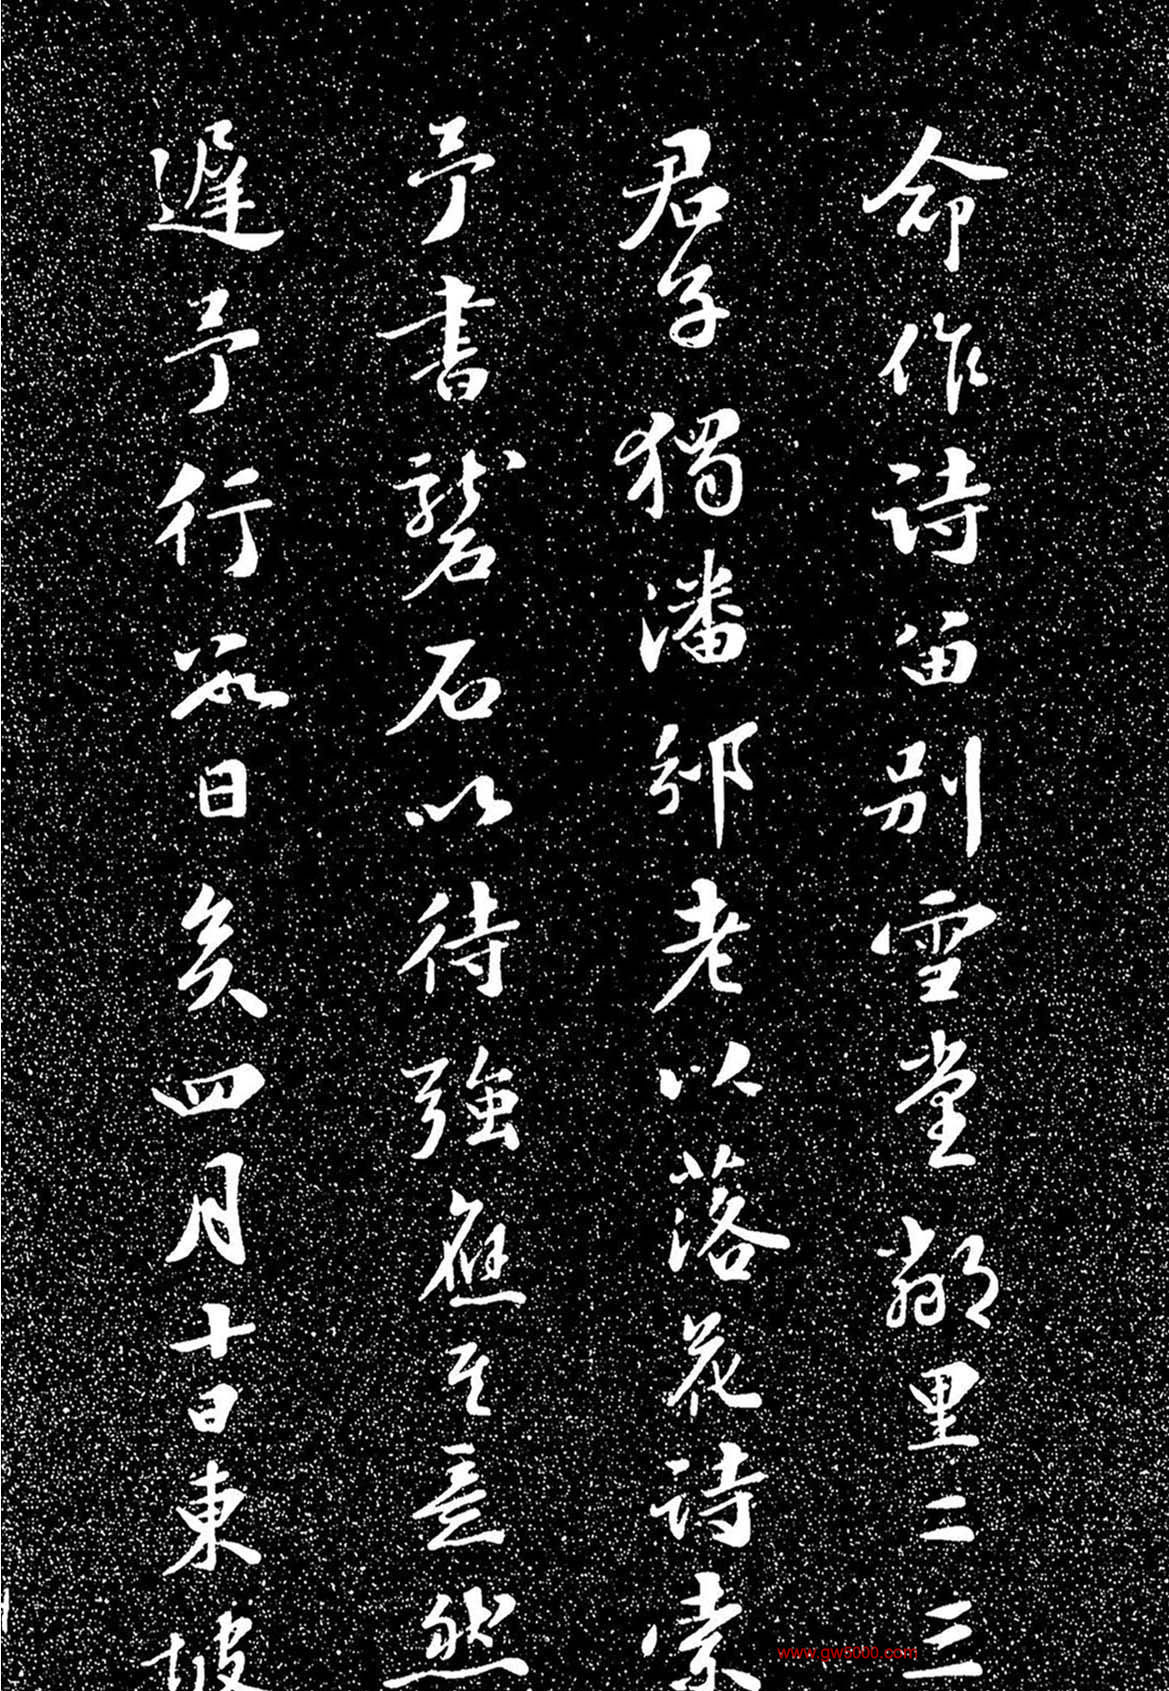 命作詩留別雪堂鄰里二三
君子獨潘邠老以落花詩索
予書礱石以待強應其意然
遲予行數日矣四月十日東坡
www.gw5000.com